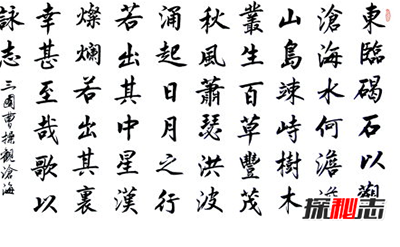 東臨碣石以觀
滄海水何澹澹
山島竦峙樹木
叢生百草豐茂
秋風蕭瑟洪波
涌起日月之行
若出其中星漢
燦爛若出其裏
幸甚至哉歌以
詠志
三國曹操觀滄海
探秘志